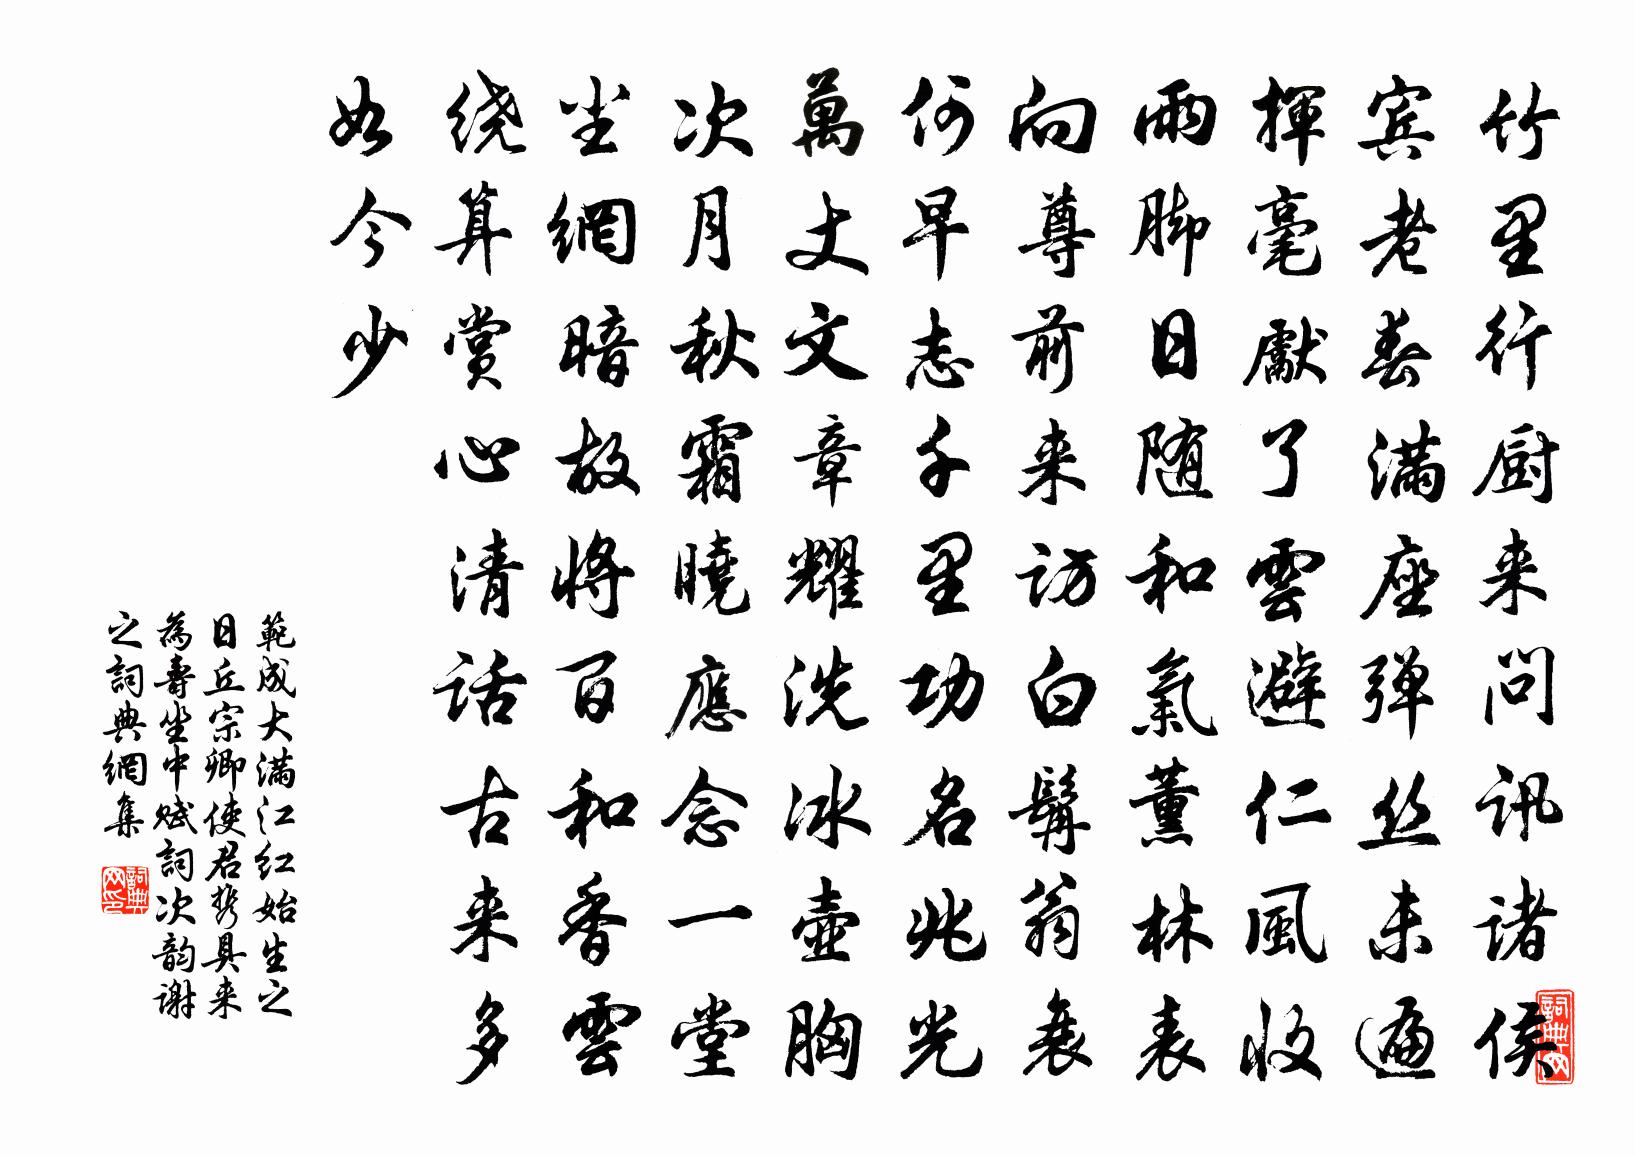 竹里行厨来问讯诸侯
宾老春满座弹丝未遍
揮毫獻了雲避仁風收
雨脚日随和氣薰林表
向尊前来访白髯翁衰
何早志千里功名兆光
萬丈文章耀洗冰壶胸
次月秋霜曉應念一堂
尘網暗故将百和香雲
绕算赏心清话古来多
如今少
範成大满江红始生之
日丘宗卿使君携具来
為壽坐中赋詞次韵谢
之詞典網集
詞典网
詞典网印